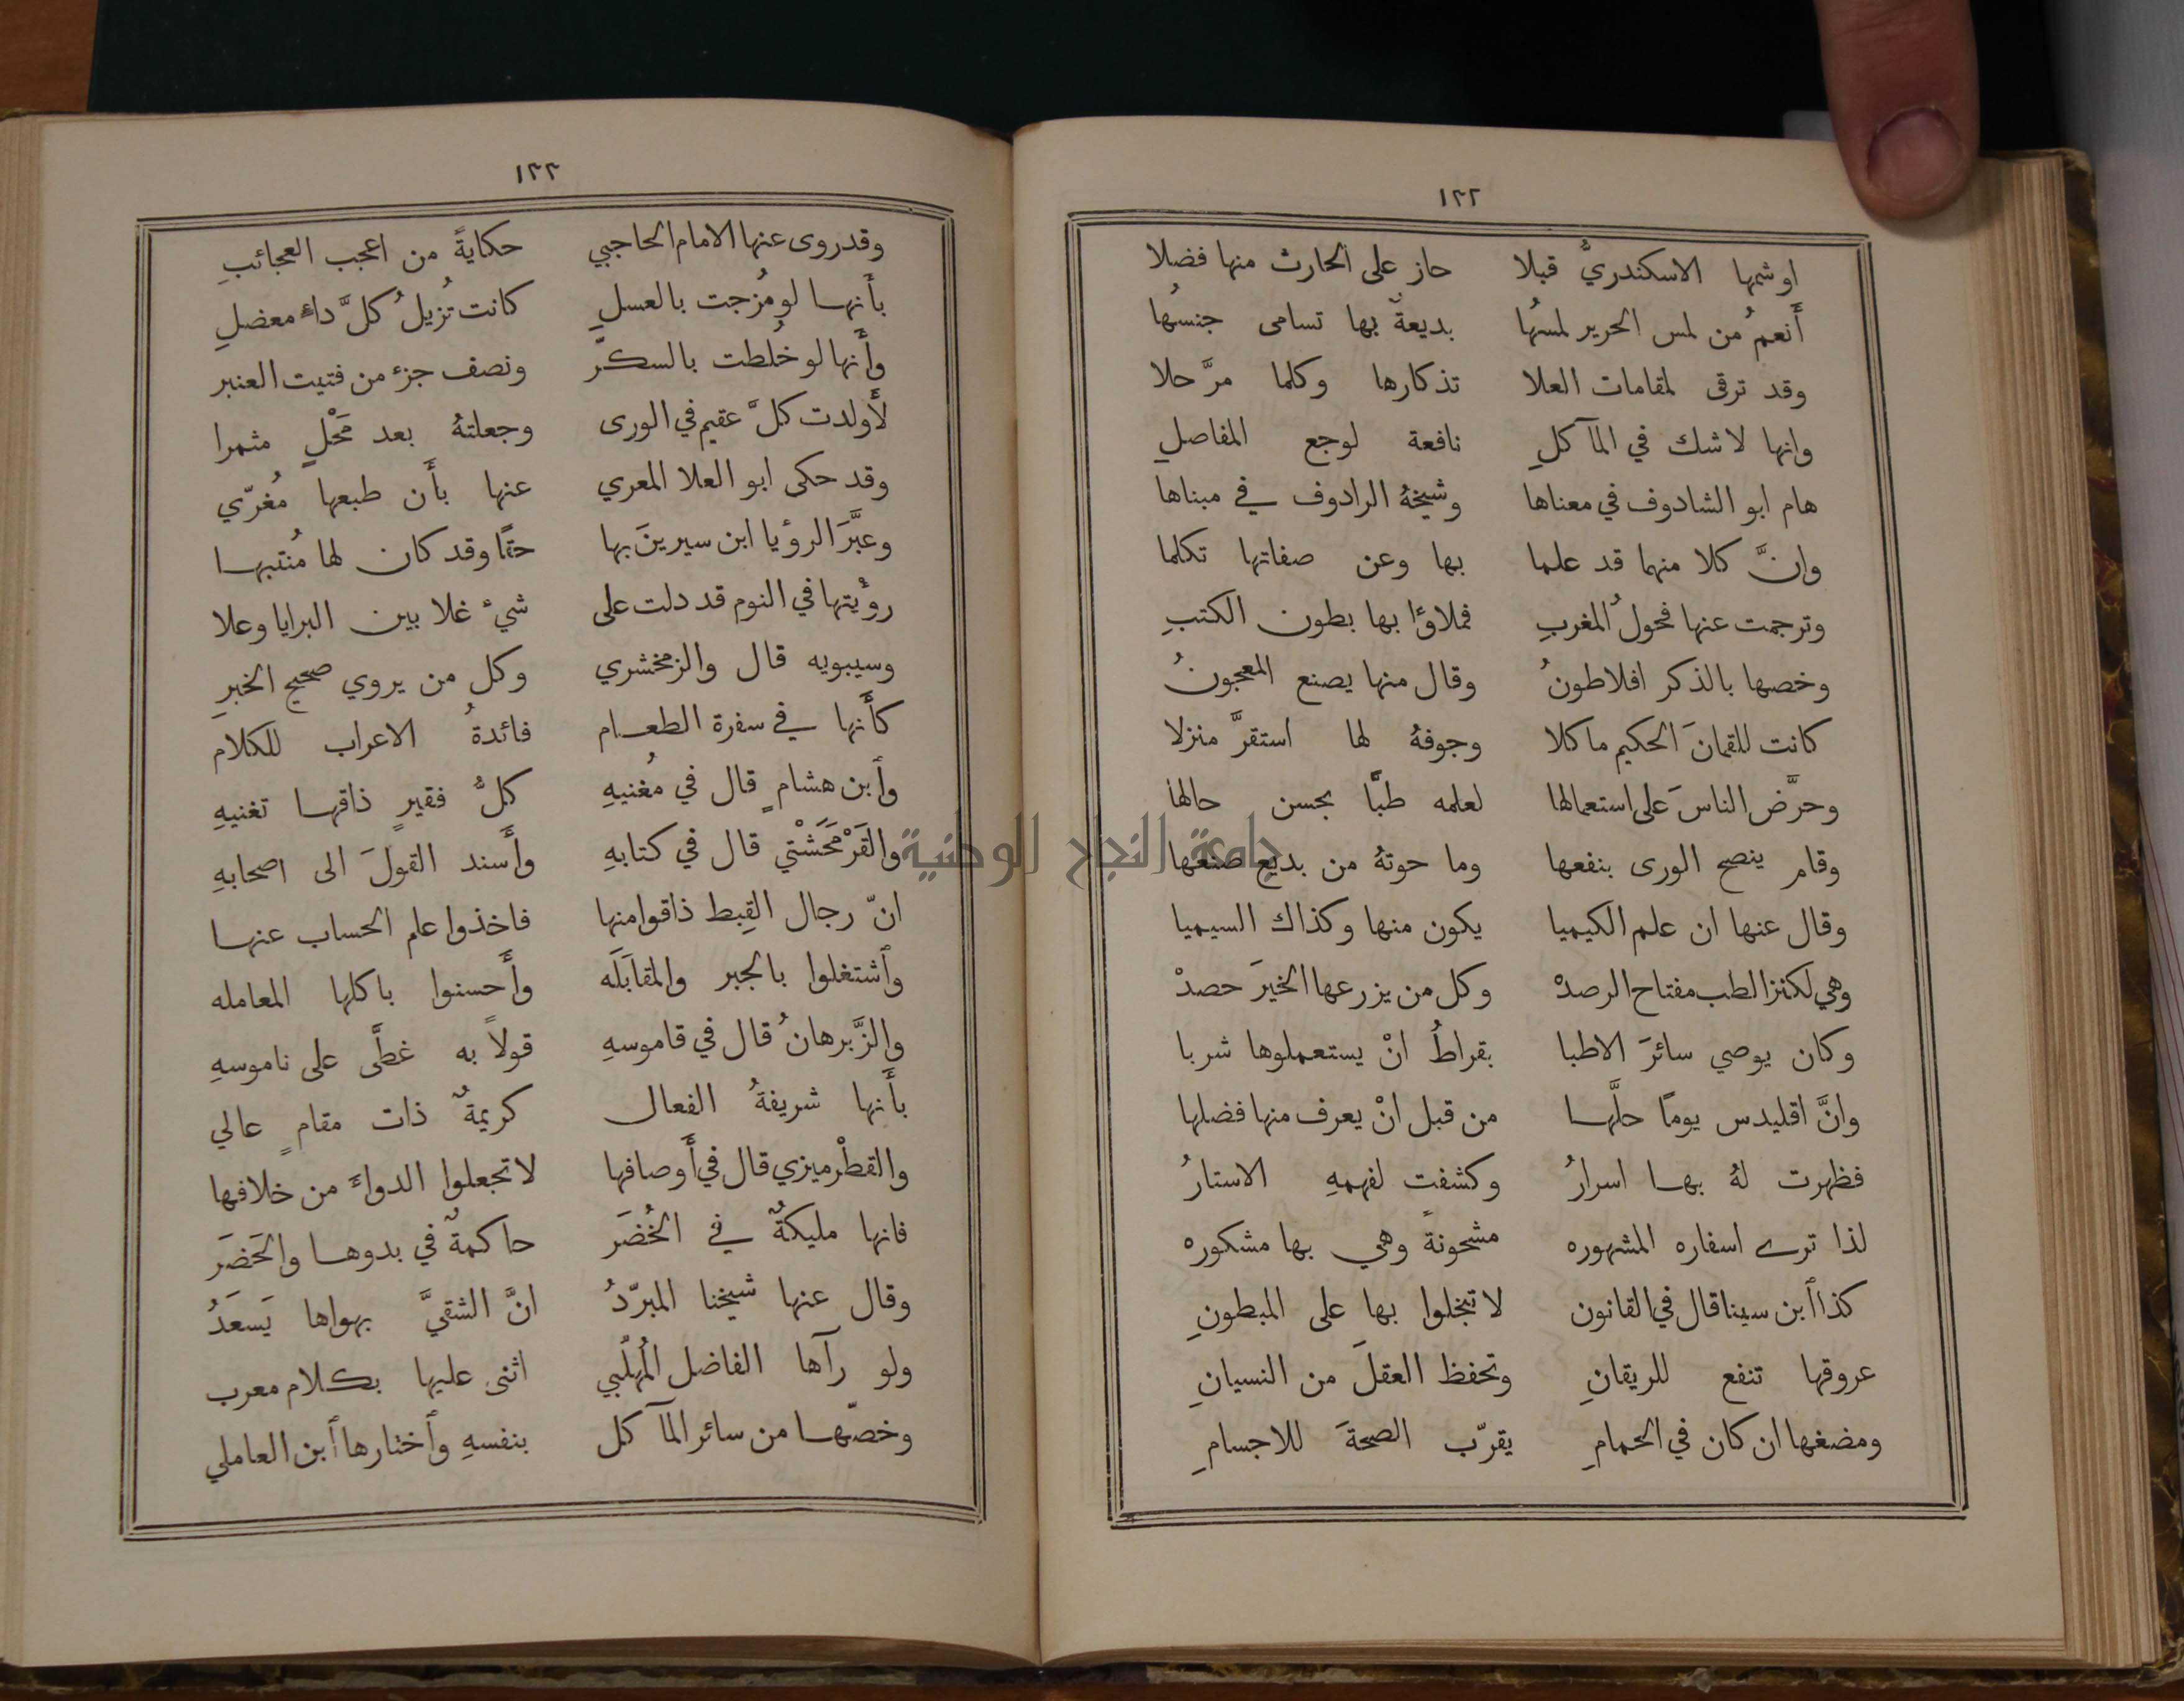 ١٢٢
اوشمها الاسكندريُّ قبلا حاز على الحارث منها فضلا
أَنعمُ من لمس الحرير لمسُها بديعةٌ بها تسامى جنسُها
وقد ترقى لمقامات العلا تذكارها وكلما مرَّ حلا
وانها لاشك في المآكلِ نافعة لوجع المفاصلِ
هام ابو الشادوف في معناها وشيخهُ الرادوف في مبناها
وانَّ كلا منهما قد علما بها وعن صفاتها تكلما
وترجمت عنها فحولُ المغربِ فملاؤا بها بطون الكتبِ
وخصها بالذكر افلاطونُ وقال منها يصنع المعجونُ
كانت للقمانَ الحكيم ماكلا وجوفهُ لها استقرَّ منزلا
وحرَّض الناسَ على استعمالها لعلمه طبًّا بحسن حالها
وقام ينصح الورى بنفعها وما حوتهُ من بديع صنعها
وقال عنها ان علم الكيميا يكون منها وكذاك السيميا
وهي لكنز الطب مفتاح الرصدْ وكل من يزرعها الخيرَ حصدْ
وكان يوصي سائرَ الاطبا بقراطُ انْ يستعملوها شربا
وانَّ اقليدس يومًا حلَّها من قبل انْ يعرف منها فضلها
فظهرت لهُ بها اسرارُ وكشفت لفهمهِ الاستارُ
لذا ترى اسفاره المشهوره مشحونة وهي بها مشكوره
كذا أبن سينا قال في القانون لا تبخلوا بها على المبطونِ
عروقها تنفع لليرقانِ وتحفظ العقلَ من النسيانِ
ومضغها ان كان في الحمامِ يقرّب الصحةَ للاجسامِ
١٢٣
وقد روى عنها الامام الحاجبي حكايةً من اعجب العجائبِ
بأَنها لو مُزجت بالعسلِ كانت تُزيلُ كلَّ داء معضلِ
وأَنها لو خُلطت بالسكرِ ونصف جزء من فتيت العنبر
لأَولدت كلَّ عقيم في الورى وجعلتهُ بعد مَحْلٍ مثمرا
وقد حكى ابو العلا المعري عنها بأَن طبعها مُغرّي
وعبَّرَ الرؤيا ابن سيرينَ بها حتمًا وقد كان لها مُنتبها
رؤْيتها في النوم قد دلت على شيء غلا بين البرايا وعلا
وسيبويه قال والزمخشري وكل من يروي صحيح الخبرِ
كأَنها في سفرة الطعام فائدةُ الاعراب للكلام
وأبن هشامٍ قال في مُغنيهِ كلُّ فقيرٍ ذاقها تغنيهِ
والقَرْمَحَشْتي قال في كتابهِ وأَسند القولَ الى اصحابهِ
انّ رجال القِبط ذاقوا منها فاخذوا علم الحساب عنها
وأشتغلوا بالجبر والمقابَلَه وأَحسنوا باكلها المعامله
والزَّبرهانُ قال في قاموسهِ قولاً به غطَّى على ناموسهِ
بأَنها شريفةُ الفعال كريمةٌ ذات مقامٍ عالي
والقطْرميزي قال في أَوصافها لا تجعلوا الدواء من خلافها
فانها مليكةٌ في الخُضَر حاكمةٌ في بدوها والحَضَر
وقال عنها شيخنا المبرّدُ انَّ الشقيَّ بهواها يَسعَدُ
ولو رآها الفاضل المُهلَّبي اثنى عليها بكلام معرب
وخصّها من سائر المآكل بنفسهِ وأختارها أبن العاملي
جامعة النجاح الوطنية